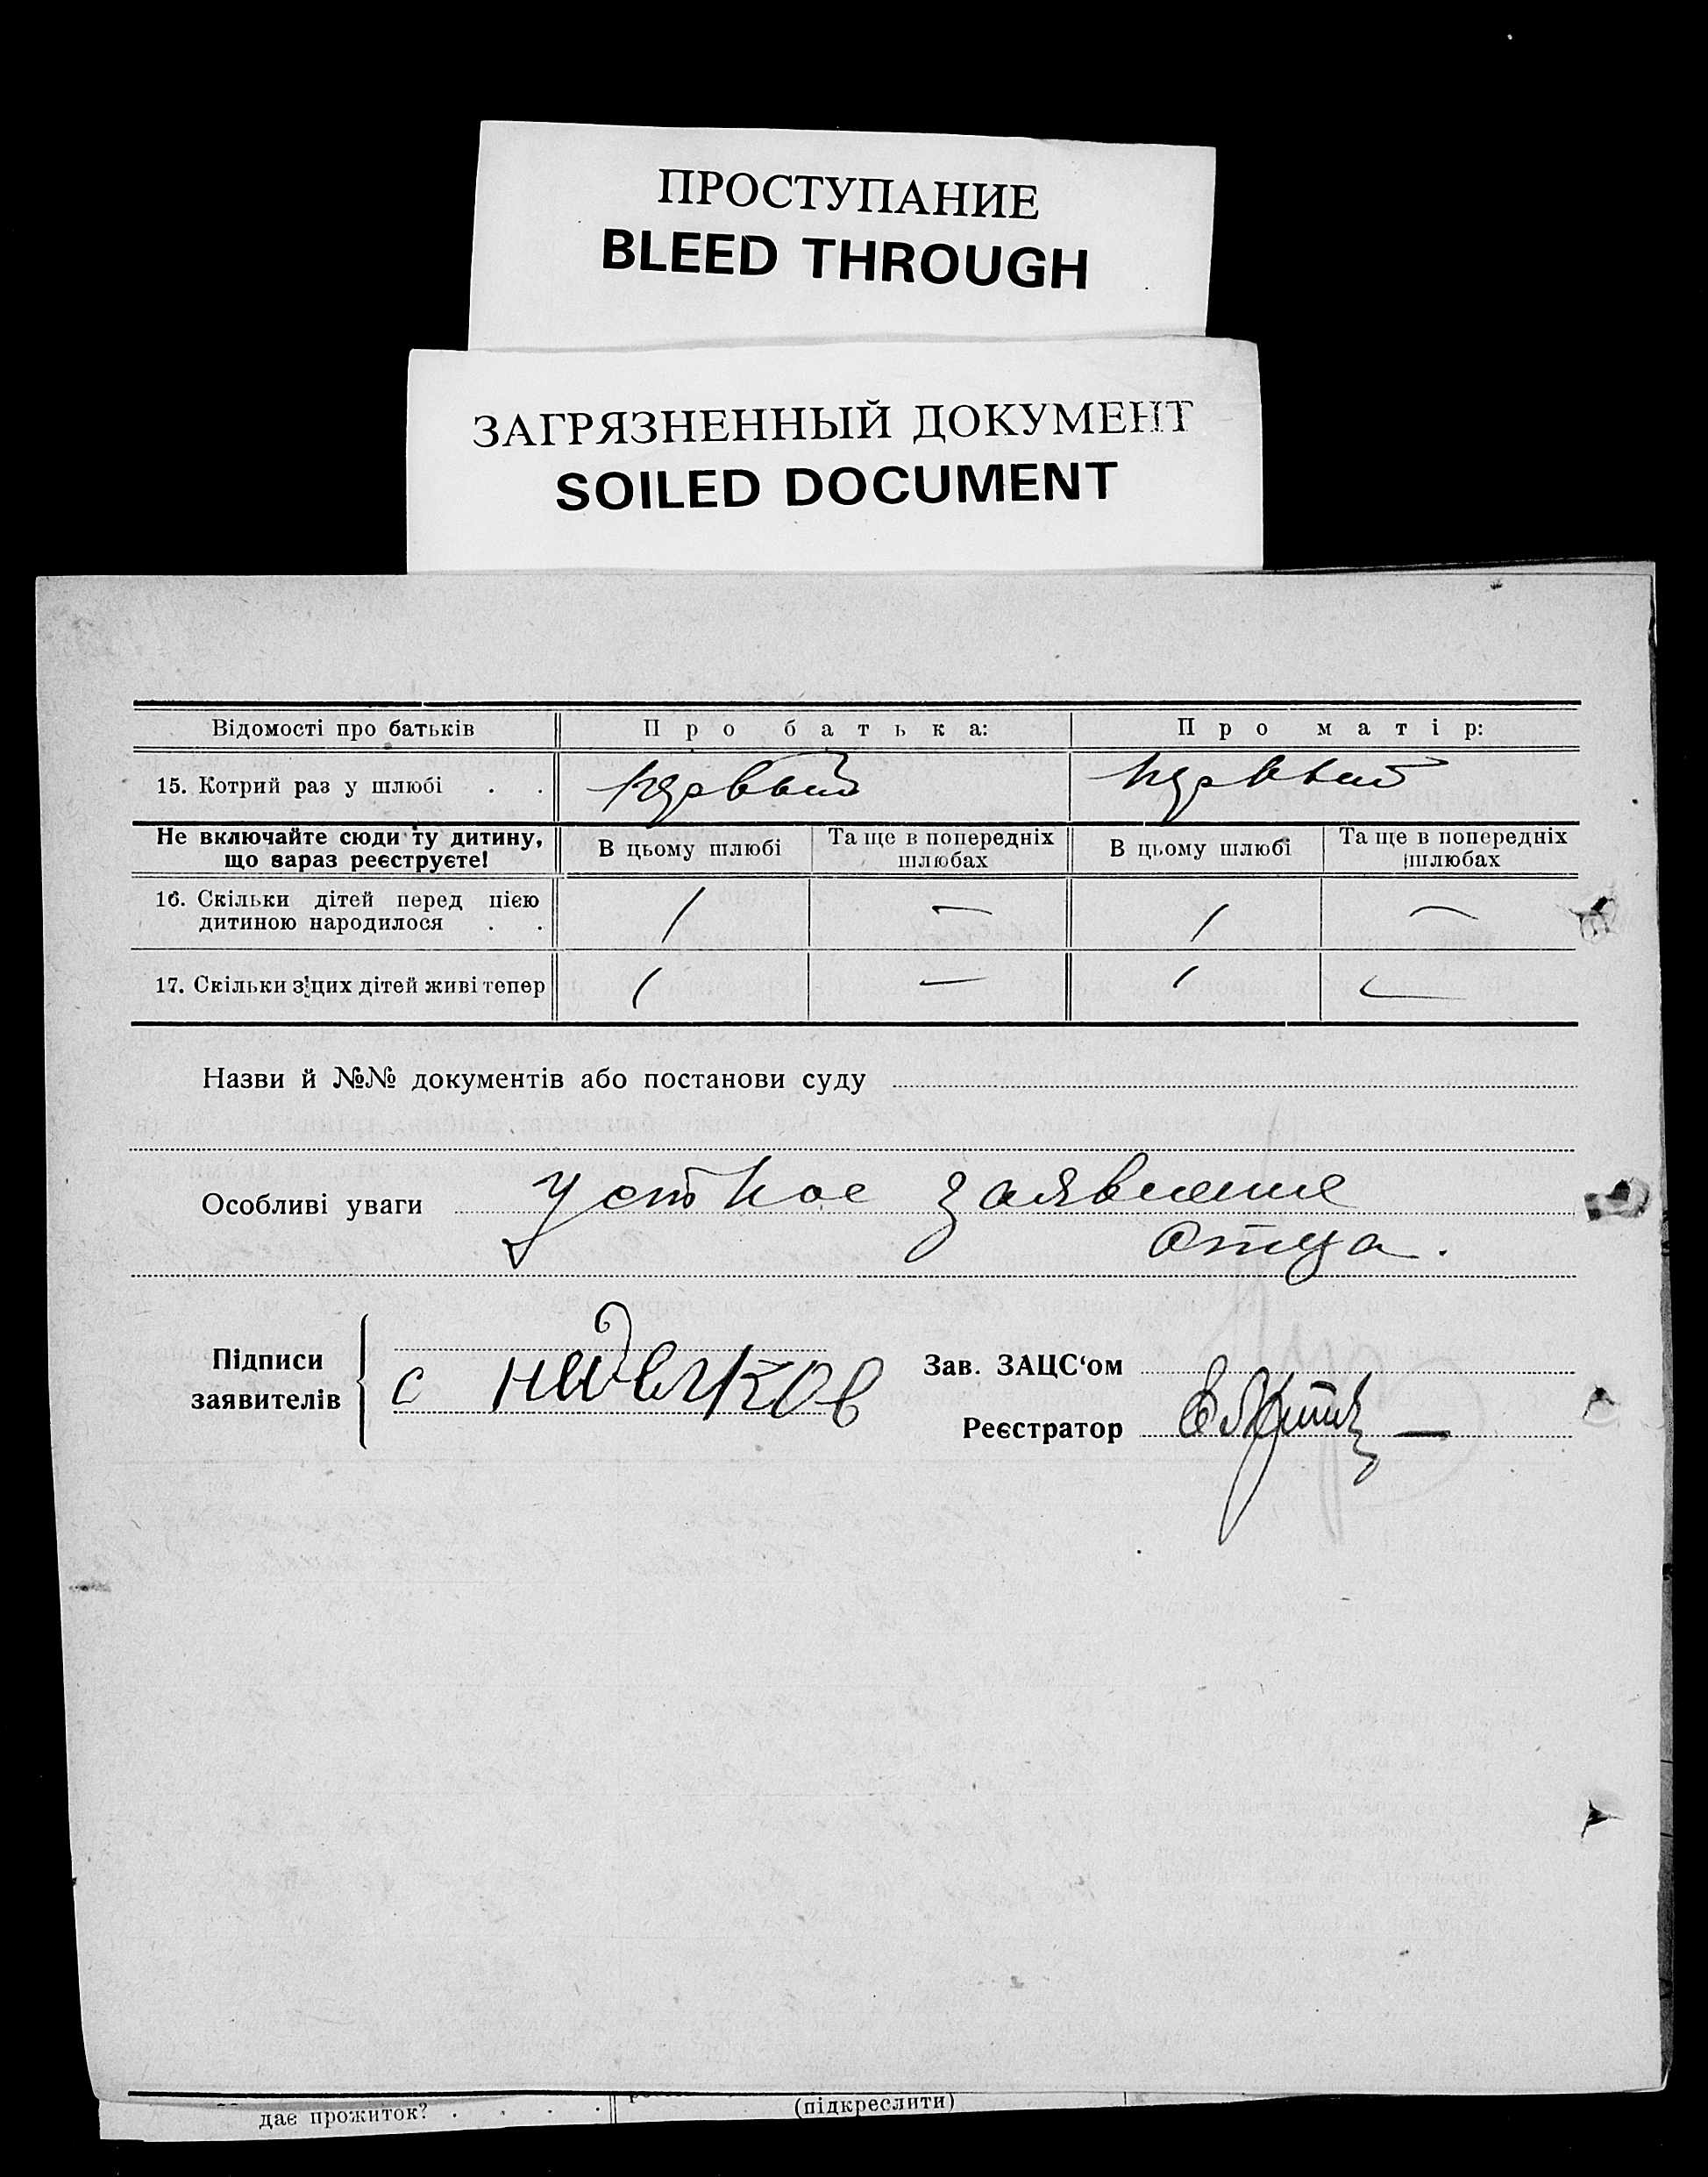 ПРОСТУПАНИЕ
BLEED THROUGH
ЗАГРЯЗНЕННЫЙ ДОКУМЕНТ
SOILED DOCUMENT
Відомості про батьків Про батька: Про матір:
15. Котрий раз у шлюбі . . первый первый
Не включайте сюди ту дитину, що зараз реєструєте! В цьому шлюбі Та ще в попередніх шлюбах В цьому шлюбі Та ще в попередніх шлюбах
16. Скільки дітей перед цією
дитиною народилося . . 1 — 1 —
17. Скільки з цих дітей живі тепер 1 — 1 —
Назви й №№ документів або постанови суду
Особливі уваги Устное заявление
отца.
Підписи
заявителів с
Зав. ЗАЦС‘ом
Реєстратор
дає прожиток? . . . . (підкреслити)